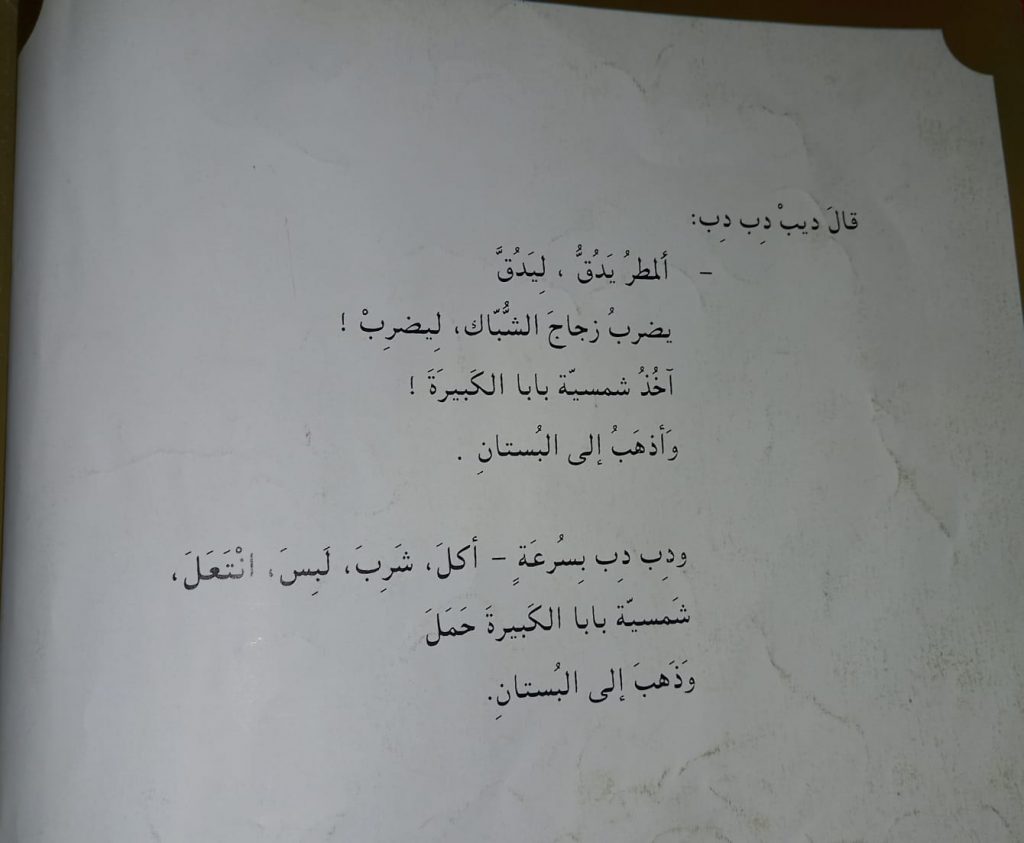 قالَ ديبْ دِب دِب:
– ألمطرُ يَدُقُّ ، لِيَدُقَّ
يضربُ زجاجَ الشُّبّاك، لِيضرِبْ !
آخُذُ شمسيّة بابا الكَبيرَةَ !
وَأذهَبُ إلى البُستانِ .
ودِب دِب بِسُرعَةٍ – أكلَ، شَرِبَ، لَبِسَ، انْتَعَلَ،
شَمسيّة بابا الكَبيرةَ حَمَلَ
وَذَهَبَ إلى البُستانِ.